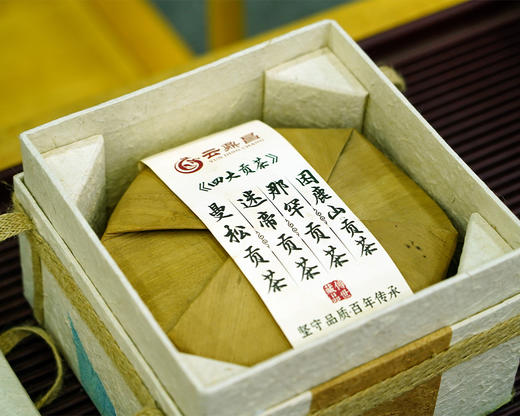 云鼎昌
YUN DING CHANG
《四大贡茶》
困鹿山贡茶
那罕贡茶
迷帝贡茶
曼松贡茶
坚守品质百年传承